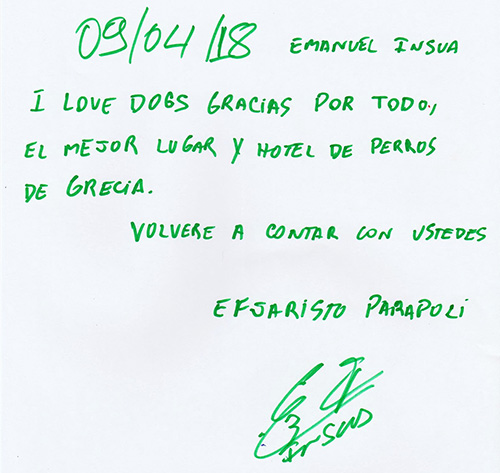 09/04/18 EMANUEL INSUA
I LOVE DOGS GRACIAS POR TODO,
EL MEJOR LUGAR Y HOTEL DE PERROS
DE GRECIA.
VOLVERE A CONTAR CON USTEDES
EFJARISTO PARAPOLI